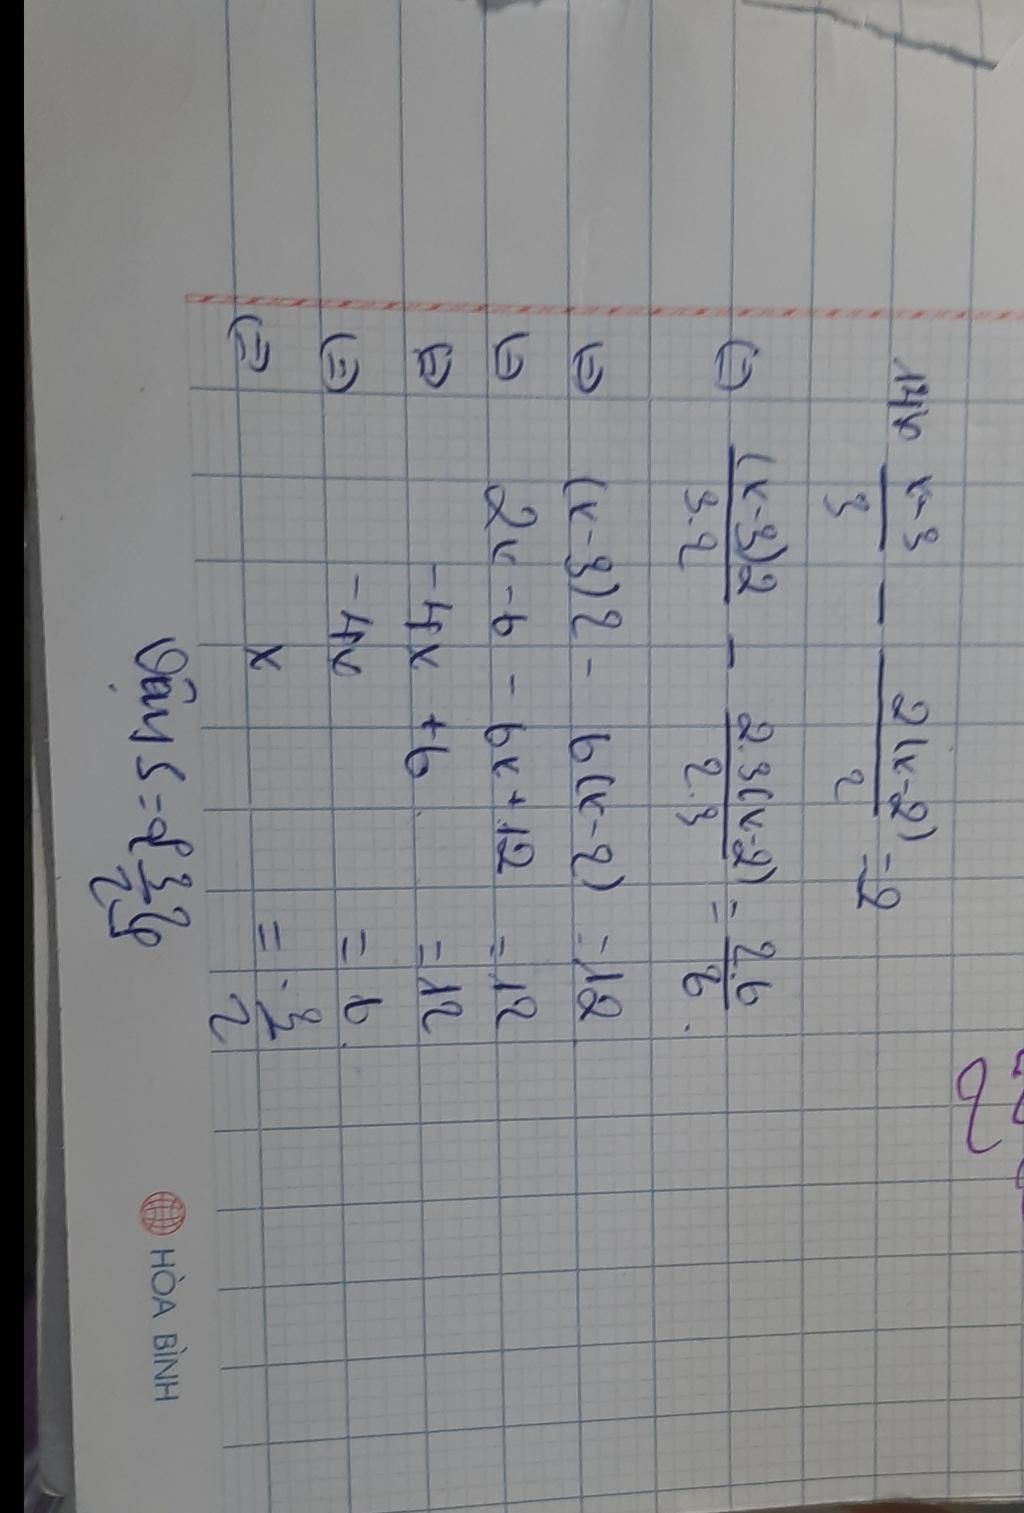 14b x-3/3 - 2(x-2)/2 = 2
⇔ (x-3)2/3.2 - 2.3(x-2)/2.3 = 2.6/6.
⇔ (x-3)2 - 6(x-2) = 12
⇔ 2x - 6 - 6x + 12 = 12
⇔ -4x + 6 = 12
⇔ -4x = 6.
⇔ x = -3/2
Vậy S = {3/2}
HÒA BÌNH